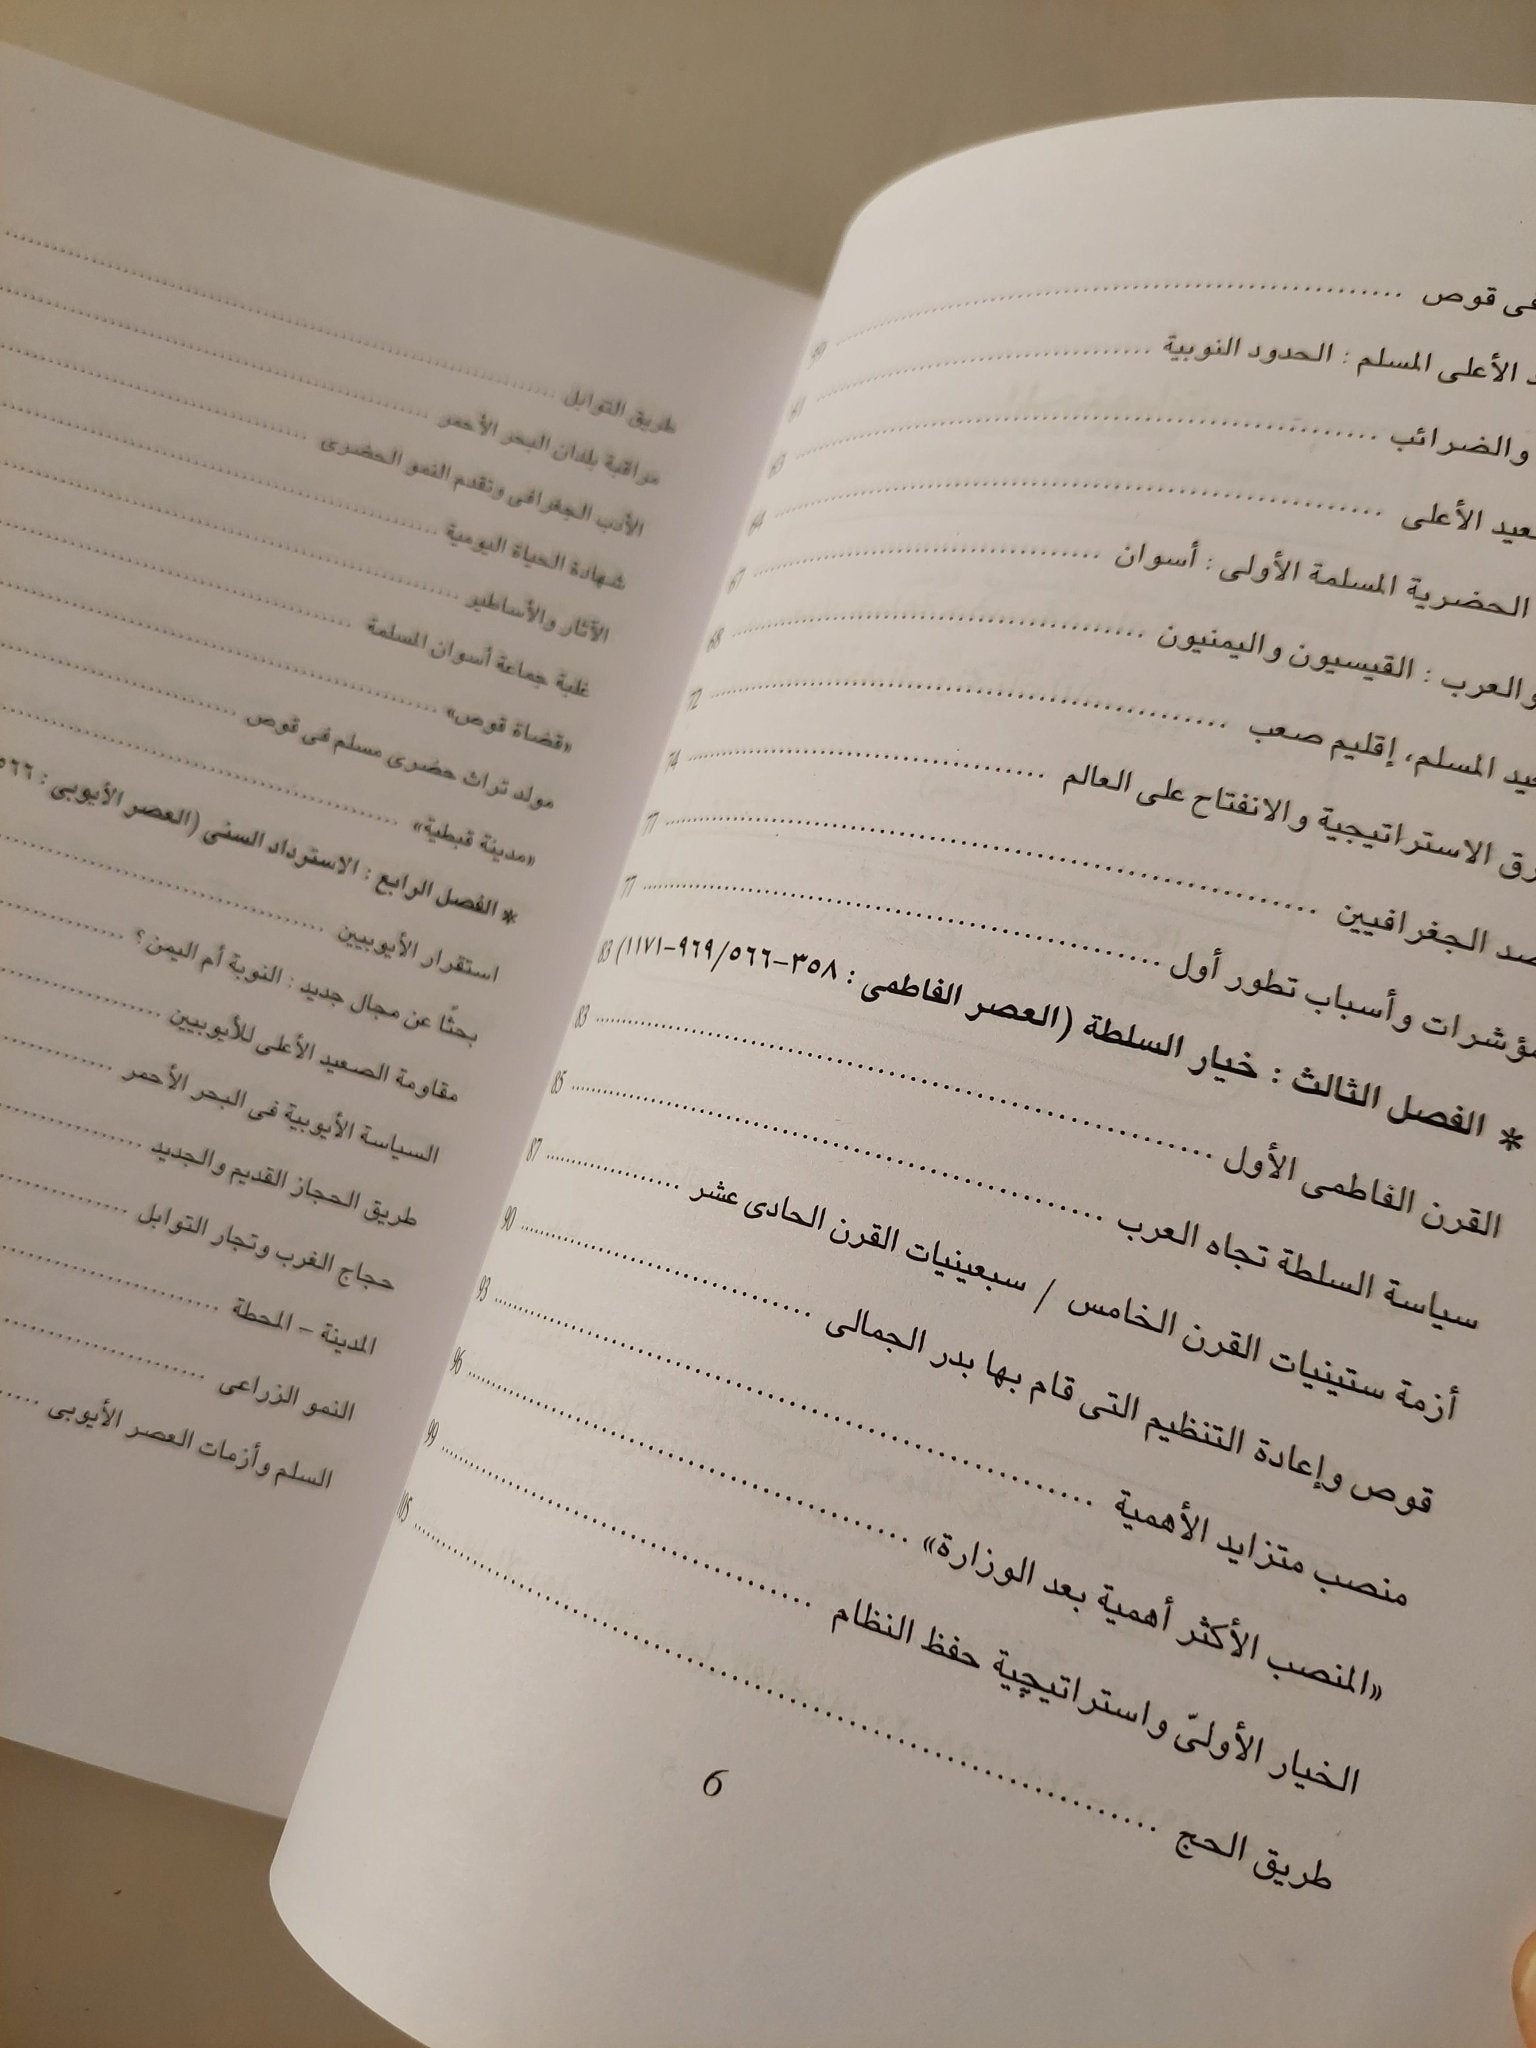 فى قوص .......... 59
الأعلى المسلم : الحدود النوبية .......... 61
والضرائب .......... 63
الأعلى .......... 64
الحضرية المسلمة الأولى : أسوان .......... 67
والعرب : القيسيون واليمنيون .......... 68
المسلم، إقليم صعب .......... 72
الاستراتيجية والانفتاح على العالم .......... 74
الجغرافيين .......... 77
وأسباب تطور أول .......... 77
* الفصل الثالث : خيار السلطة (العصر الفاطمى : ٣٥٨-٥٦٦/٩٦٩-١١٧١) 83
القرن الفاطمى الأول .......... 83
سياسة السلطة تجاه العرب .......... 85
أزمة ستينيات القرن الخامس / سبعينيات القرن الحادى عشر .......... 87
قوص وإعادة التنظيم التى قام بها بدر الجمالى .......... 90
منصب متزايد الأهمية .......... 93
«المنصب الأكثر أهمية بعد الوزارة» .......... 96
الخيار الأولىّ واستراتيچية حفظ النظام .......... 99
طريق الحج .......... 105
6
طريق التوابل ..........
مراقبة بلدان البحر الأحمر ..........
الأدب الجغرافى وتقدم النمو الحضرى ..........
شهادة الحياة اليومية ..........
الآثار والأساطير ..........
غلبة جماعة أسوان المسلمة ..........
«قضاة قوص» ..........
مولد تراث حضرى مسلم فى قوص ..........
«مدينة قبطية» ..........
* الفصل الرابع : الاسترداد السنى (العصر الأيوبى : ٥٦٦
استقرار الأيوبيين ..........
بحثًا عن مجال جديد : النوبة أم اليمن؟ ..........
مقاومة الصعيد الأعلى للأيوبيين ..........
السياسة الأيوبية فى البحر الأحمر ..........
طريق الحجاز القديم والجديد ..........
حجاج الغرب وتجار التوابل ..........
المدينة – المحطة ..........
النمو الزراعى ..........
السلم وأزمات العصر الأيوبى ..........